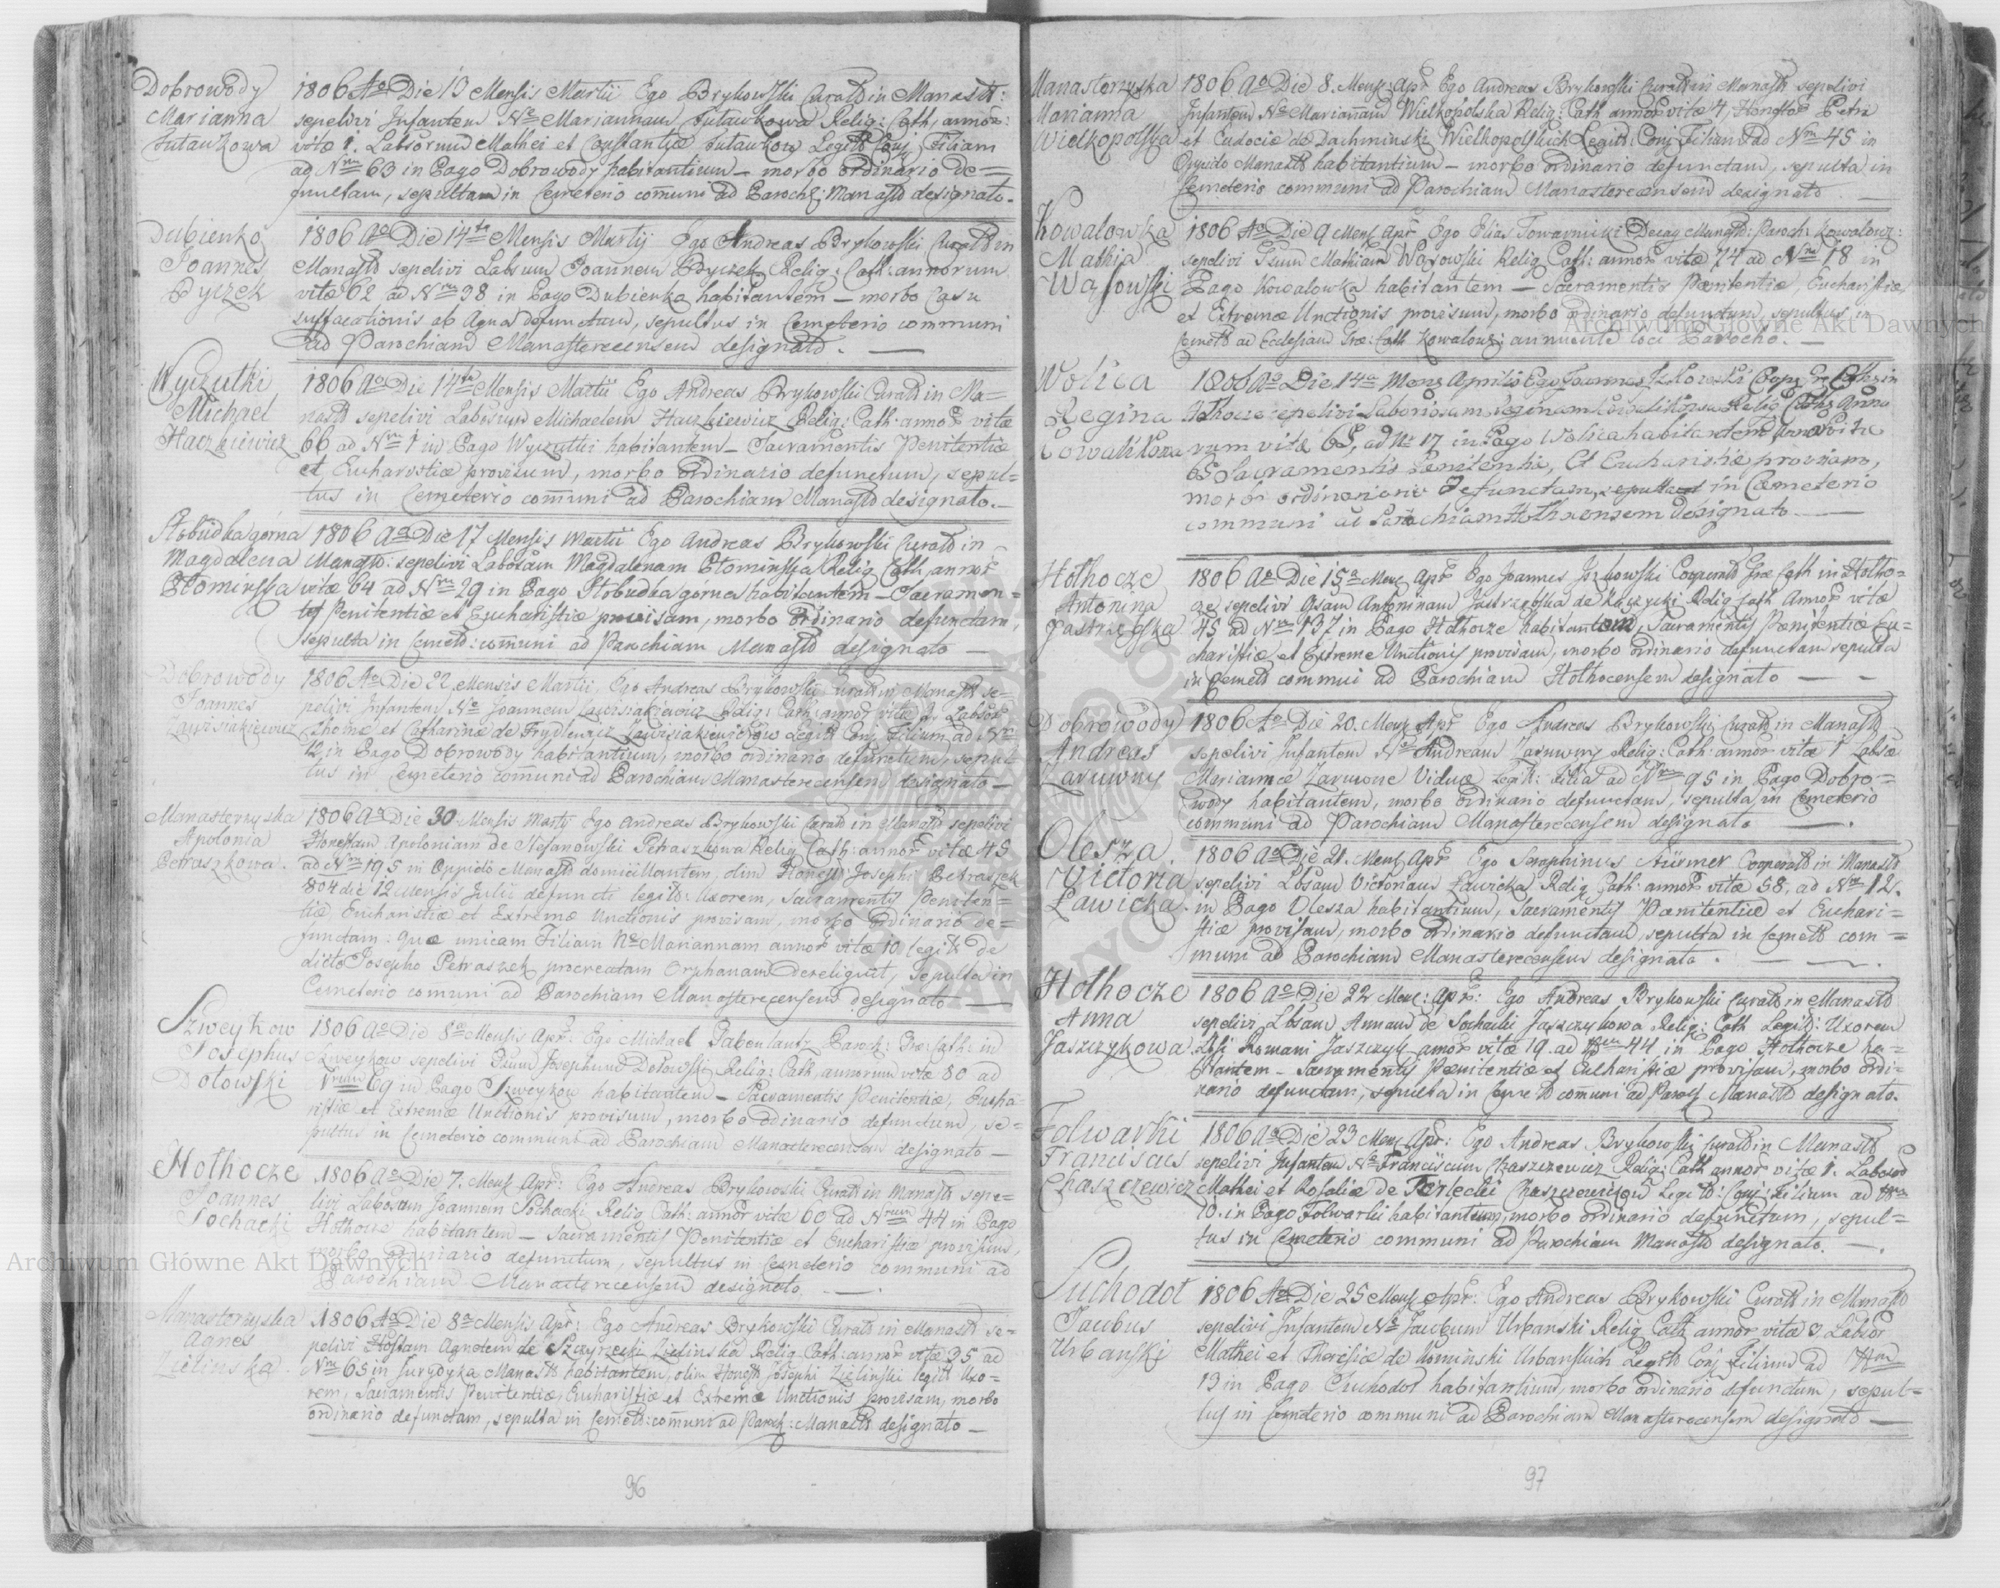 Dobrowody
Marianna
1806 Ao Die 13 Mensis Martii Ego Brykowski Curat9 in Manast:
sepelivi Infantem Ne Mariannam Relig: Cath: annor:
vitæ 1. Laborum Mathei et Constantiæ Legit Conj Filiam
ad Nrm 63 in Pago Dobrowody habitantium — morbo ordinario de=
functam, sepultam in Cemeterio comuni ad Paroch: Manast designato.
Dubienko
Joannes
Pyczek
1806 Ao Die 14ta Mensis Martij Ego Andreas Brykowski Curat9 in
Manast9 sepelivi Labsum Joannem Pyczek Relig: Cath: annorum
vitæ 62 ad Nrm 98 in Pago Dubienka habitantem — morbo Casu
suffocationis ab Aqua defunctum, sepultus in Cemeterio communi
ad Parochiam Manasterecensem designato. —
Wyczułki
Michael
Haczkiewicz
1806 Ao Die 14ta Mensis Martii Ego Andreas Brykowski Curat9 in Ma=
nast9 sepelivi Labosum Michaelem Haczkiewicz Relig: Cath: annor vitæ
66 ad Nrm 1 in Pago Wyczułki habitantem — Sacramentis Penitentiæ
et Eucharistiæ provisum, morbo ordinario defunctum, sepul=
tus in Cemeterio comuni ad Parochiam Manast9 designato. —
Słobudka górna
Magdalena
Słomińska
1806 Ao Die 17 Mensis Martii Ego Andreas Brykowski Curat9 in
Manast9: sepelivi Labosam Magdalenam Słomińska Relig Cath: annor
vitæ 64 ad Nrm 29 in Pago Słobudka górna habitantem — Sacramen=
tis Penitentiæ et Eucharistiæ provisam, morbo ordinario defunctam,
sepulta in Cemet9: comuni ad Parochiam Manast9 designato —
Dobrowody
Joannes
Zawisiakiewicz
1806 Ao Die 22 Mensis Martii, Ego Andreas Brykowski Curat9 in Manast9 se=
pelivi Infantem Ne Joannem Zawisiakiewicz Relig: Cath: annor vitæ Labsor
Thomæ et Catharinæ de Zawisiakiewiczow Legit9 Conj Filium ad Nrm
12 in Pago Dobrowody habitantium, morbo ordinario defunctum, sepul=
tus in Cemeterio comuni ad Parochiam Manasterecensem designato —
Manasterzyska
Apolonia
Petraszkowa.
1806 Ao Die 30 Mensis Marty Ego Andreas Brykowski Curat9 in Manast9 sepelivi
Honestam Apoloniam de Stefanowski Petraszkowa Relig Cath: annor vitæ 45
ad Nrm 195 in Oppido Manast9 domicillantem, olim Honesti Josephi Petraszek
804 die 12 Mensis Julii defuncti legit: Uxorem, Sacramentis Peniten=
tiæ, Eucharistiæ et Extremæ Unctionis provisam, morbo ordinario de=
functam: quæ unicam Filiam Ne Mariannam annor vitæ 10 legit9 de
dicto Josepho Petraszek procreatam Orphanam dereliquit, sepulta in
Cemeterio comuni ad Parochiam Manasterecensem designato —
Szweykow
Josephus
Dołowski
1806 Ao Die 5a Mensis Apr: Ego Michael Paroch: in
Szweykow sepelivi Josephum Dołowski Relig: Cath, annorum vitæ 80 ad
Nrum 69 in Pago Szweykow habitantem — Sacramentis Penitentiæ, Eucha=
ristiæ et Extremæ Unctionis provisum, morbo ordinario defunctum, se=
pultus in Cemeterio communi ad Parochiam Manasterecensem designato —
Hołhocze
Joannes
Sochacki
1806 Ao Die 7. Mens Apr: Ego Andreas Brykowski Curat9 in Manast9 sepe=
livi Labosum Joannem Sochacki Relig Cath: annor vitæ 60 ad Nrum 44 in Pago
Hołhocze habitantem — Sacramentis Penitentiæ et Eucharistiæ provisum,
morbo ordinario defunctum, sepultus in Cemeterio communi ad
Parochiam Manasterecensem designato —
Manasterzyska
Agnes
Zielinska.
1806 Ao Die 8a Mensis Apr: Ego Andreas Brykowski Curat9 in Manast9 se=
pelivi Hostam Agnetem de Zielinska Relig Cath: annor vitæ 35 ad
Nrm 65 in Jurydyka Manast9 habitantem, olim Honest9 Josephi Zielinski legit9 Uxo=
rem, Sacramentis Penitentiæ, Eucharistiæ et Extremæ Unctionis provisam, morbo
ordinario defunctam, sepulta in Cemet9: comuni ad Paroch: Manast9 designato —
96
Manasterzyska
Marianna
Wielkopolska
1806 Ao Die 8. Mens: Apr Ego Andreas Brykowski Curat9 in Manast9 sepelivi
Infantem Ne Mariannam Wielkopolska Relig: Cath annor vitæ 4 Honestor Petri
et Eudociæ de Dachminski Wielkopolskich Legit9: Conj Filiam ad Nrm 45 in
Oppido Manast9 habitantium — morbo ordinario defunctam, sepulta in
Cemeterio communi ad Parochiam Manasterecensem designato —
Kowalowka
Mathia
Wąsowski
1806 Ao Die 9 Mens Apr Ego Elias Towarnicki Decag Manast9: Paroch: Kowalowz:
sepelivi Mathiam Wąsowski Relig Cath: annor vitæ 74 ad Nrm 18 in
Pago Kowalowka habitantem — Sacramentis Pænitentiæ, Eucharistiæ
et Extremæ Unctionis provisum, morbo ordinario defunctum, sepultus in
cemet9 ad Ecclesiam Græ: Cath Kowalowz: annuente loci Parocho. —
Wolica
Regina
Kowalikowa
1806 Ao Die 14a Mens Aprilis Ego Joannes Iżkowski Coopr Gr Cath in
Hołhocze sepelivi Laboriosam Reginam Kowalikowa Relig Cath: Anno
rum vitæ 65, ad Nr 17 in Pago Wolica habitantem
Sacramentis Pænitentiæ, Et Eucharistiæ provisam,
morbo ordinario Defunctam, sepulta in Cæmeterio
communi ad Parochiam Hołhocensem designato —
Hołhocze
Antonina
Jastrzębska
1806 Ao Die 15a Mens Apr Ego Joannes Iżkowski Cooperat9 Græ Cath in Hołho=
cze sepelivi Gsam Antoninam Jastrzębska de Relig Cath Annor vitæ
45 ad Nrm 137 in Pago Hołhocze habitantem, Sacramentis Pænitentiæ Eu=
charistiæ et Extreme Unctionis provisam, morbo ordinario defunctam sepulta
in Cemet9 commui ad Parochiam Hołhocensem designato — —
Dobrowody
Andreas
Zaruwny
1806 Ao Die 20. Mens Apr Ego Andreas Brykowski Curat9 in Manast9
sepelivi Infantem Ne Andream Zaruwny Relig: Cath: annor vitæ 1 Labsæ
Mariannæ Zaruwne Viduæ Legit: ad Nrm 95 in Pago Dobro=
wody habitantem, morbo ordinario defunctum, sepulta in Cemeterio
communi ad Parochiam Manasterecensem designato —.
Olesza.
Victoria
Ławicka.
1806 Ao Die 21. Mens Apr Ego Seraphinus Cooperat9 in Manast9
sepelivi Lbsam Victoriam Ławicka Relig Cath: annor vitæ 58, ad Nrm 12.
in Pago Olesza habitantium, Sacramentis Pænitentiæ et Euchari=
stiæ provisam, morbo ordinario defunctam, sepulta in Cemet9 com=
muni ad Parochiam Manasterecensem designato. —
Hołhocze
Anna
Jaszczykowa
1806 Ao Die 22 Mens: Apr: Ego Andreas Brykowski Curat9 in Manast9
sepelivi Lbsam Annam de Sochacki Jaszczykowa Relig: Cath Legit9: Uxorem
Lbsi Romani Jaszczyk annor vitæ 19 ad Nrum 44 in Pago Hołhocze ha=
bitantem — Sacramentis Pænitentiæ et Eucharistiæ provisam, morbo ordi=
nario defunctam, sepulta in Ceme t9 comuni ad Paroch Manast9 designato.
Folwarki
Franciscus
Chaszczewicz
1806 Ao Die 23 Mens Apr: Ego Andreas Brykowski Curat9 in Manast9
sepelivi Infantem Ne Franciscum Chaszczewicz Relig: Cath annor vitæ 1. Labosor
Mathei et Rosaliæ de Terlecki Chaszczewiczow Legit9: Conj: Filium ad Nrm
10. in Pago Folwarki habitantium, morbo ordinario defunctum, sepul=
tus in Cemeterio communi ad Parochiam Manast9 designato. —.
Suchodoł
Jacobus
Urbanski
1806 Ao Die 25 Mens Apr: Ego Andreas Brykowski Curat9 in Manast9
sepelivi Infantem Ne Jacobum Urbanski Relig Cath annor vitæ 3 Labsor
Mathei et Theresiæ de Urbanskich Legit9 Conj Filium ad Nrm
13 in Pago Suchodoł habitantium, morbo ordinario defunctum, sepul=
tus in Cemeterio communi ad Parochiam Manasterecensem designato —
97
Archiwum Główne Akt Dawnych
Archiwum Główne Akt Dawnych